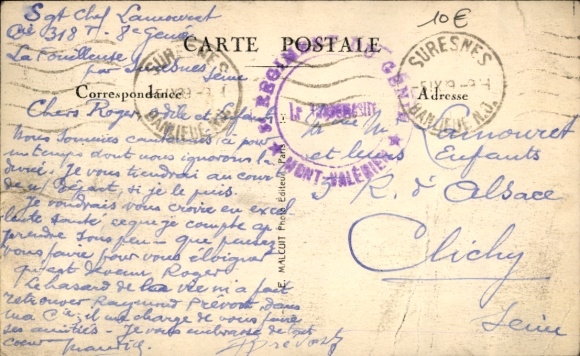 Sgt Chef Lamouret
Cie 318 T - 8e Génie
La Fouilleuse
par Suresnes
Seine
10€
CARTE POSTALE
Correspondance
Adresse
SURESNES
BANLIEUE N.O.
SURESNES
BANLIEUE N.O.
8e REGIMENT DU GENIE
MONT-VALÉRIEN
E. MALCUIT Photo Editeur, Paris
Chers Roger, et Enfants
Nous sommes cantonnés ici pour
un temps dont nous ignorons la
durée. Je vous tiendrai au courant
du départ, si je le puis.
Je voudrais vous croire en excel
lente santé ce que je compte ap
prendre sous peu - que pensez
vous faire pour vous éloigner
qu'est devenu Roger
Le hasard de la vie m'a fait
retrouver Raymond Prévost dans
ma Cie; il me charge de vous faire
ses amitiés - Je vous embrasse de tout
coeur
Prévost
M Lamouret
et leurs Enfants
R. d'Alsace
Clichy
Seine